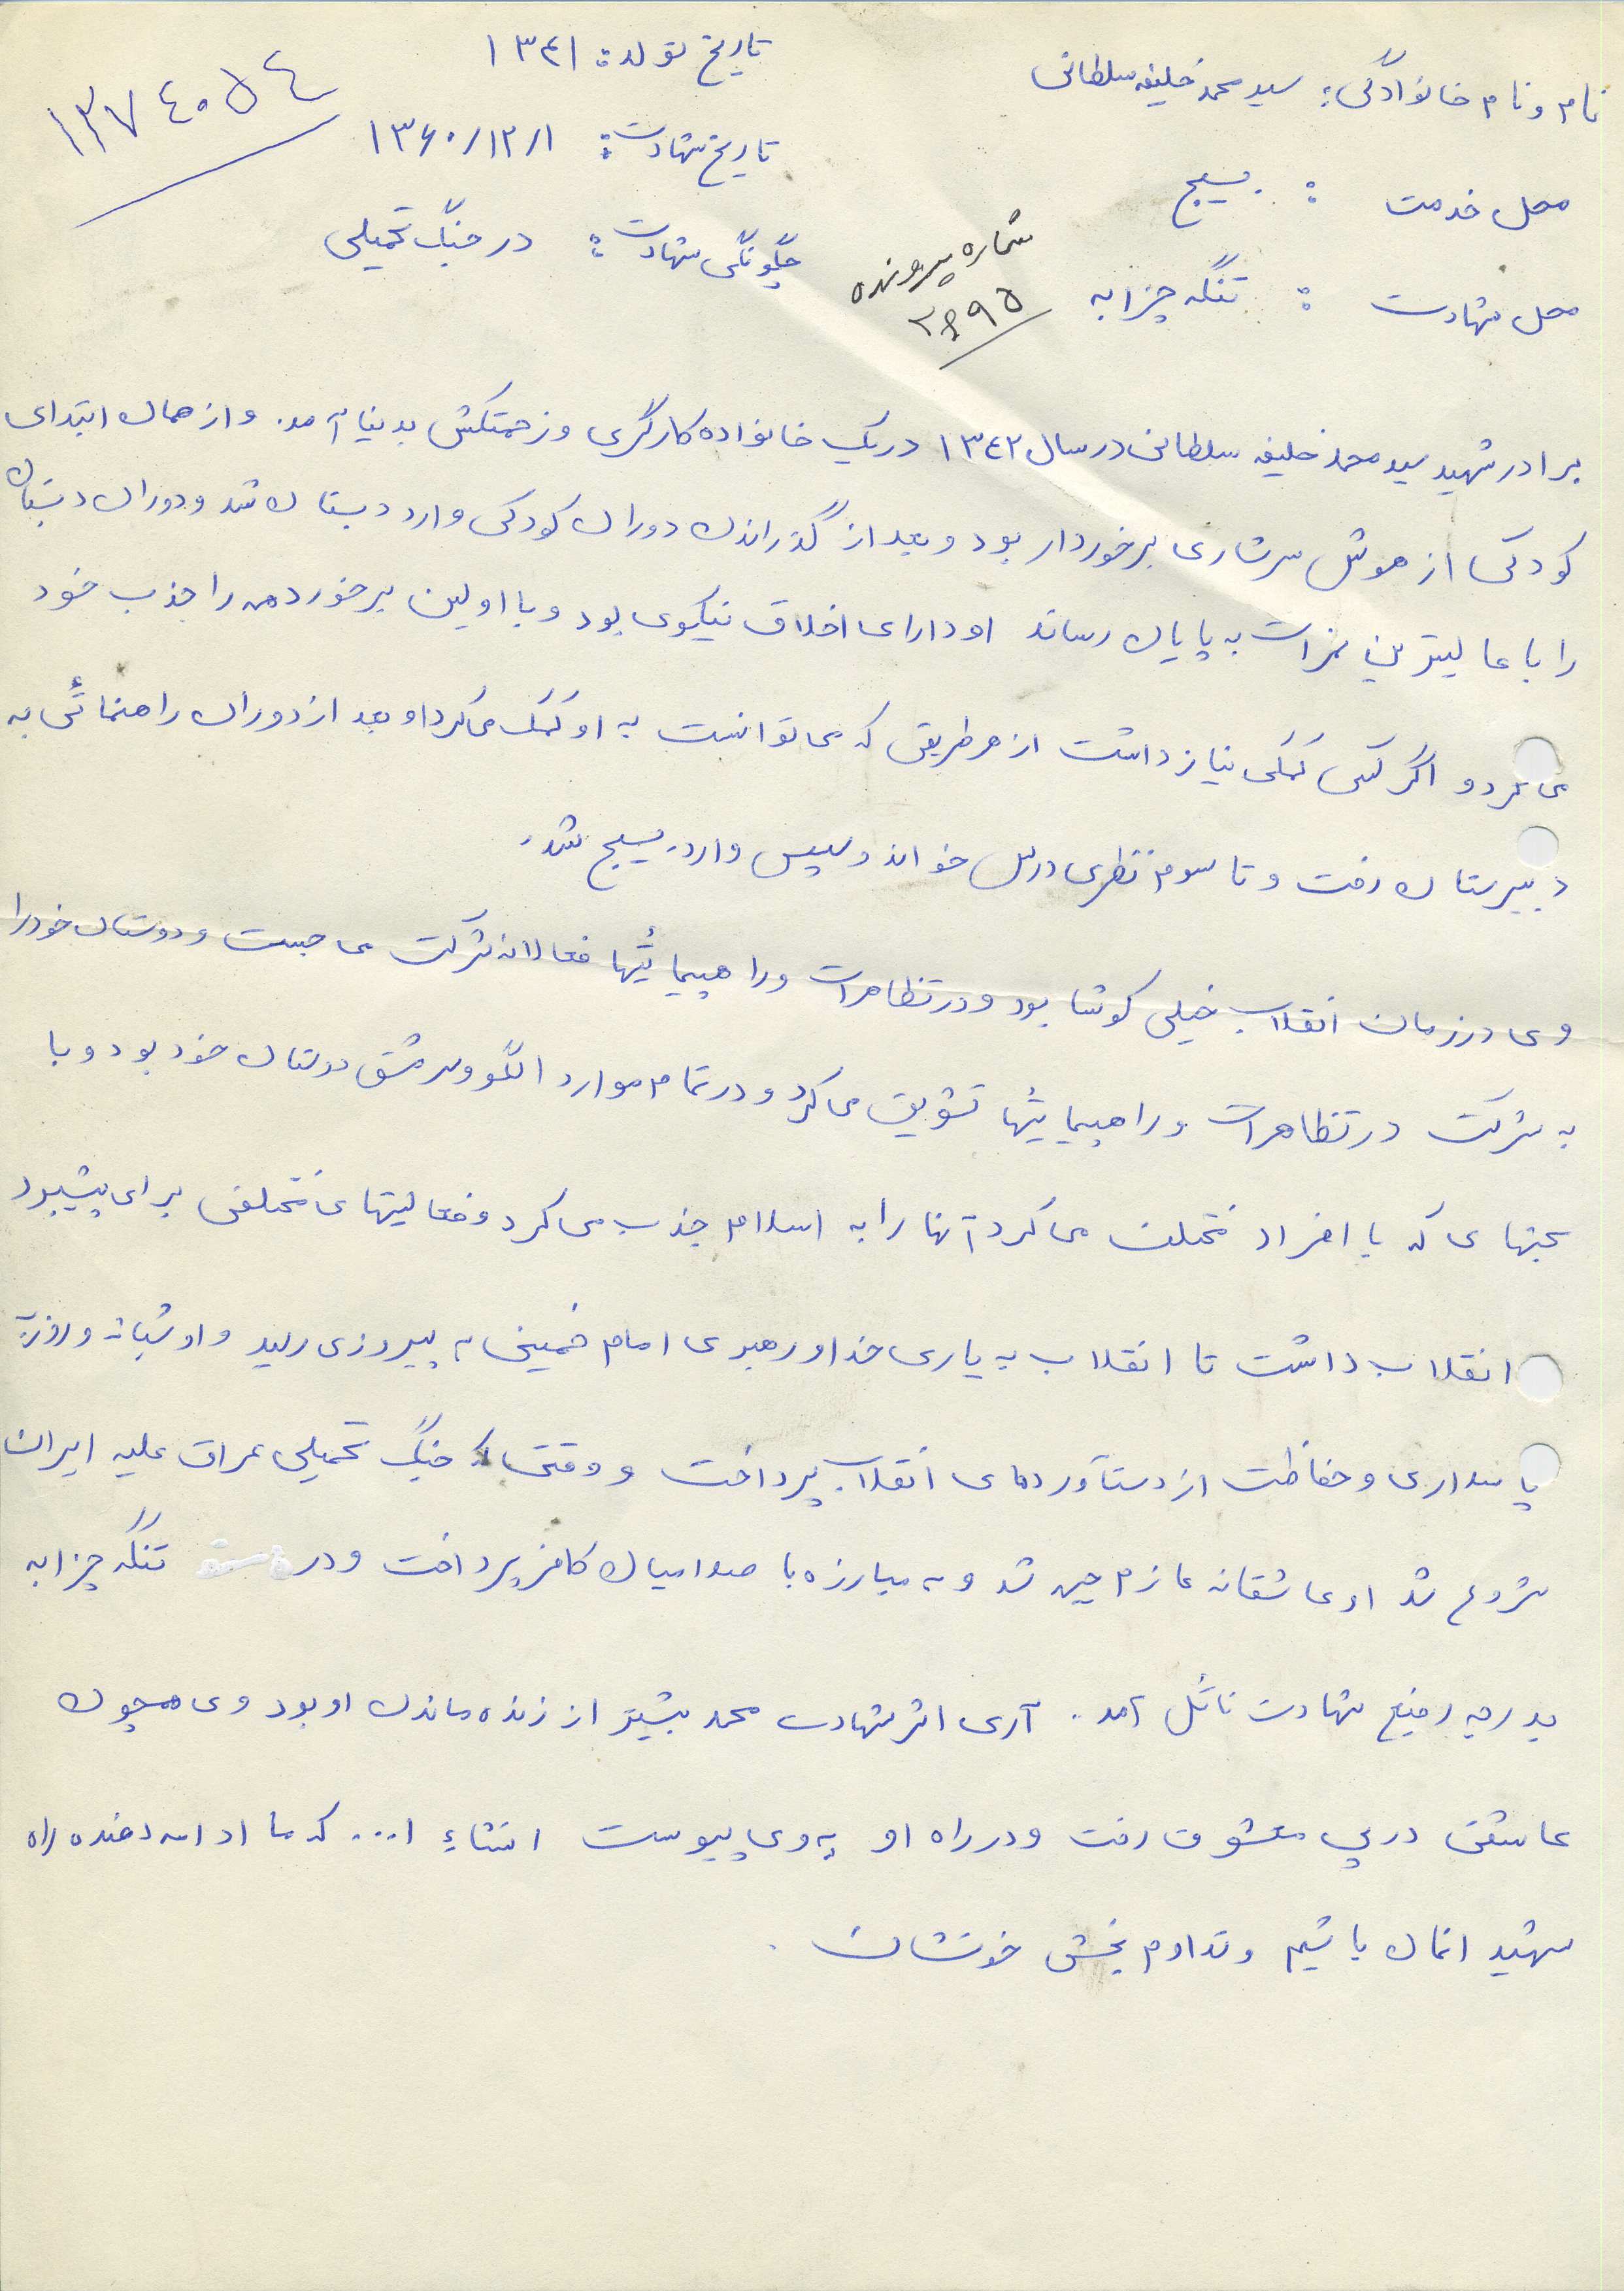 نام و نام خانوادگی: سید محمد خلیفه سلطانی
تاریخ تولد: ۱۳۴۱
۱۳۷۴۰۵۴
محل خدمت : بسیج
تاریخ شهادت: ۱۳۶۰/۱۲/۱
محل شهادت : تنگه چزابه
شماره پرونده
۲۶۹۵
چگونگی شهادت: در جنگ تحمیلی
برادر شهید سید محمد خلیفه سلطانی در سال ۱۳۴۲ در یک خانواده کارگری و زحمتکش بدنیا آمد. و از همان ابتدای
کودکی از هوش سرشاری برخوردار بود و بعد از گذراندن دوران کودکی وارد دبستان شد و دوران دبستان
را با عالیترین نمرات به پایان رساند او دارای اخلاق نیکوی بود و با اولین برخورد همه را جذب خود
می کرد و اگر کسی کمکی نیاز داشت از هر طریقی که می توانست به او کمک می کرد او بعد از دوران راهنمائی به
دبیرستان رفت و تا سوم نظری درس خواند و سپس وارد بسیج شد.
وی در زمان انقلاب خیلی کوشا بود و در تظاهرات و راهپیمائیها فعالانه شرکت می جست و دوستان خود را
به شرکت در تظاهرات و راهپیمائیها تشویق می کرد و در تمام موارد الگو و سرمشق دوستان خود بود و با
بحثهای که با افراد مختلف می کرد آنها را به اسلام جذب می کرد و فعالیتهای مختلفی برای پیشبرد
انقلاب داشت تا انقلاب به یاری خدا و رهبری امام خمینی به پیروزی رسید و او شبانه و روز به
پاسداری و حفاظت از دستآوردهای انقلاب پرداخت و وقتی که جنگ تحمیلی عراق علیه ایران
شروع شد او عاشقانه عازم جبهه شد و به مبارزه با صدامیان کافر پرداخت و در تنگه چزابه
بدرجه رفیع شهادت نائل آمد. آری اثر شهادت محمد بیشتر از زنده ماندن او بود وی همچون
عاشقی در پی معشوق رفت و در راه او به وی پیوست انشاء ا... که ما ادامه دهنده راه
شهیدانمان باشیم و تداوم بخش خونشان.